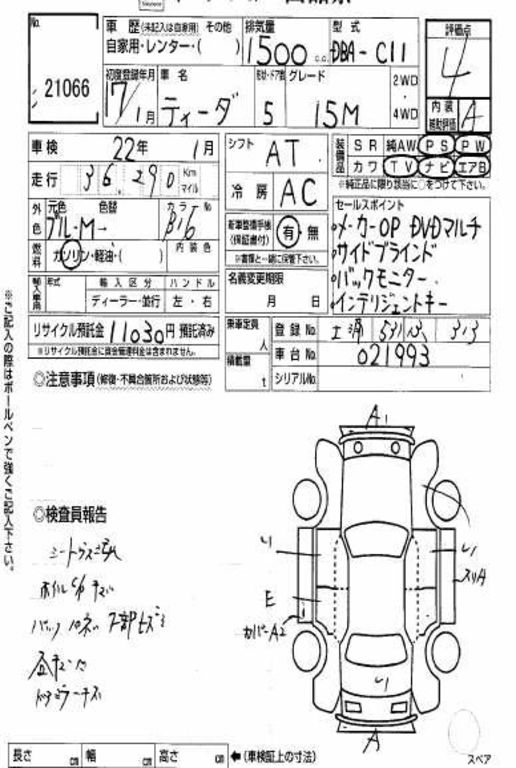 No.
21066
車歴 (未記入は自家用) その他
自家用・レンター・( )
排気量
1500 c.c.
型式
DBA-C11
評価点
4
内装補助評価 A
初度登録年月
17/1月
車名
ティーダ
形状・ドア数
5
グレード
15M
2WD
・
4WD
車検 22年 1月
走行 36,290 Km マイル
外色 元色 色替
ブル-M→
カラーNo
B16
燃料 ガソリン・軽油・( )
内装色
輸入車用 年式
輸入区分 ハンドル
ディーラー・並行 左・右
リサイクル預託金 11030円 預託済み
※リサイクル預託金に資金管理料金は含まれません。
シフト AT
冷房 AC
新車整備手帳(保証書付) 有・無
(※書類と一緒に保管下さい。)
名義変更期限
月 日
乗車定員 人
積載量 t
登録No.
車台No. 021993
シリアルNo.
装備品 SR 純AW PS PW
カワ TV ナビ エアB
※純正品に限り該当に○をつけて下さい。
セールスポイント
・メーカーOP DVDマルチ
・サイドブラインド
・バックモニター
・インテリジェントキー
◎注意事項 (修復・不具合箇所および状態等)
※ご記入の際はボールペンで強くご記入下さい。
◎検査員報告
A1
リ
リ
スリA
E
カバーA2
リ
A
長さ cm 幅 cm 高さ cm ←(車検証上の寸法)
スペア